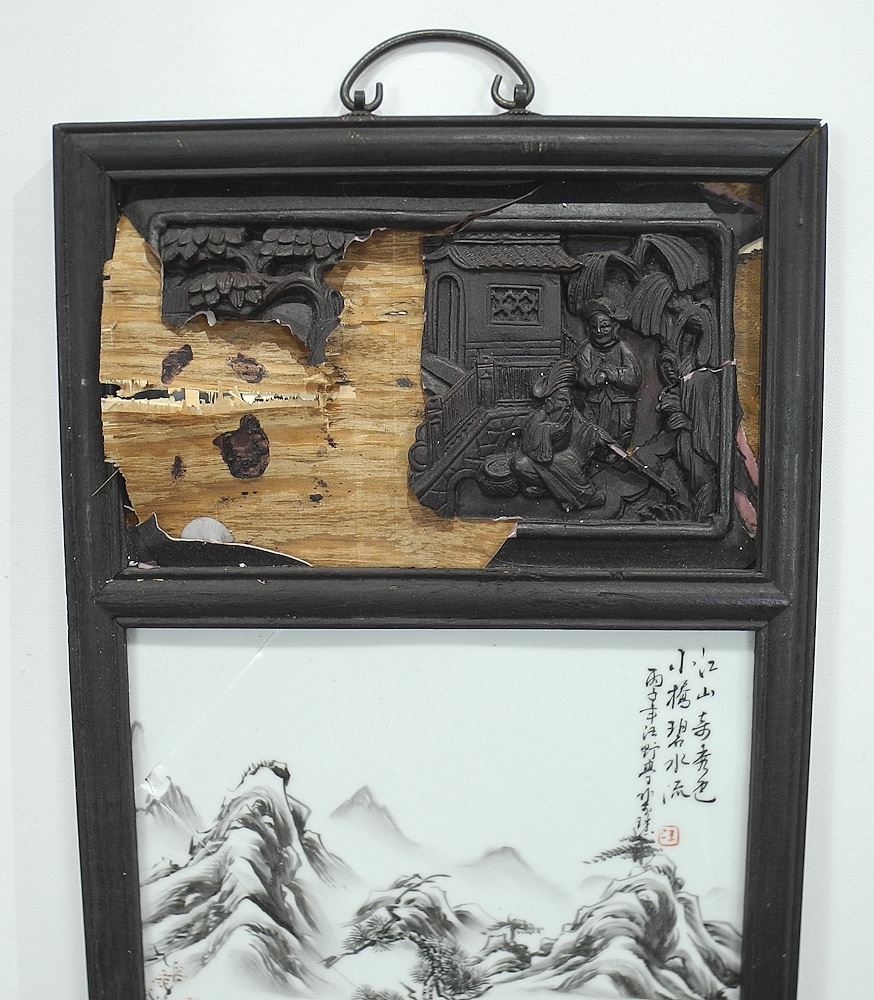 江山奇秀色
小橋碧水流
丙子年汪野亭
汪